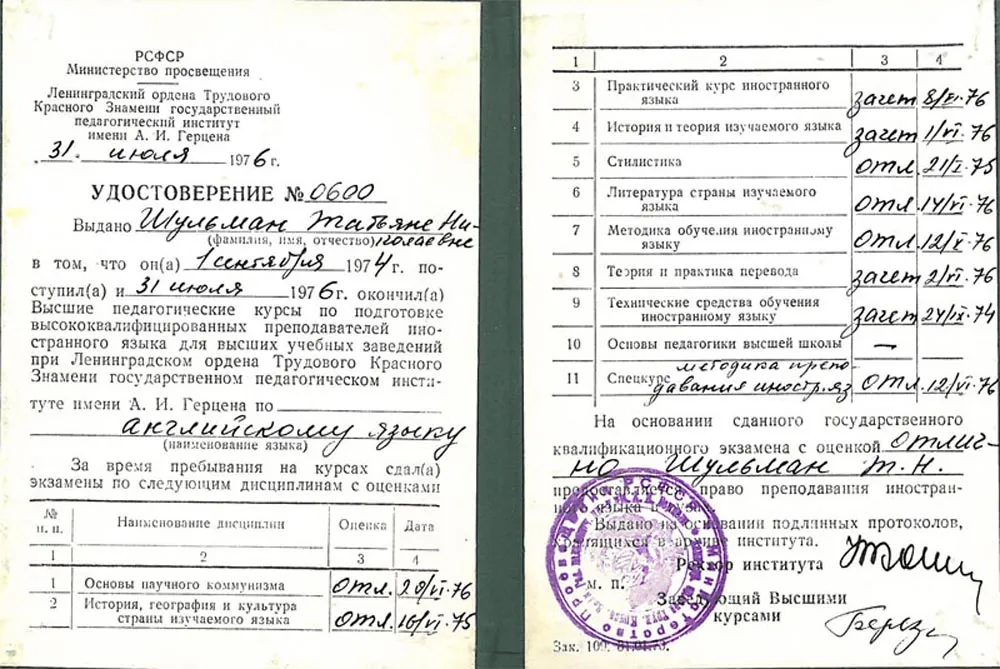 РСФСР
Министерство просвещения
Ленинградский ордена Трудового
Красного Знамени государственный
педагогический институт
имени А. И. Герцена
31. июля 1976 г.
УДОСТОВЕРЕНИЕ № 0600
Выдано Шульман Татьяне Ни-
(фамилия, имя, отчество) колаевне
в том, что он(а) 1 сентября 1974 г. по-
ступил(а) и 31 июля 1976 г. окончил(а)
Высшие педагогические курсы по подготовке
высококвалифицированных преподавателей ино-
странного языка для высших учебных заведений
при Ленинградском ордена Трудового Красного
Знамени государственном педагогическом инсти-
туте имени А. И. Герцена по
английскому языку
(наименование языка)
За время пребывания на курсах сдал(а)
экзамены по следующим дисциплинам с оценками
№ п. п. Наименование дисциплин Оценка Дата
1 2 3 4
1 Основы научного коммунизма отл. 20/VI-76
2 История, география и культура
страны изучаемого языка отл. 16/VI-75
1 2 3 4
3 Практический курс иностранного
языка зачет 8/VI-76
4 История и теория изучаемого языка зачет 1/VI-76
5 Стилистика отл. 21/I-75
6 Литература страны изучаемого
языка отл. 14/VI-76
7 Методика обучения иностранному
языку отл. 12/X-76
8 Теория и практика перевода зачет 2/VI-76
9 Технические средства обучения
иностранному языку зачет 24/IX-74
10 Основы педагогики высшей школы —
11 Спецкурс методика препо-
давания иностр. яз отл. 12/VI-76
На основании сданного государственного
квалификационного экзамена с оценкой отлич-
но Шульман Т. Н.
предоставляется право преподавания иностран-
ного языка в
Выдано на основании подлинных протоколов,
хранящихся в архиве института.
Ректор института
м. п.
Заведующий Высшими
курсами
Зак. 109.